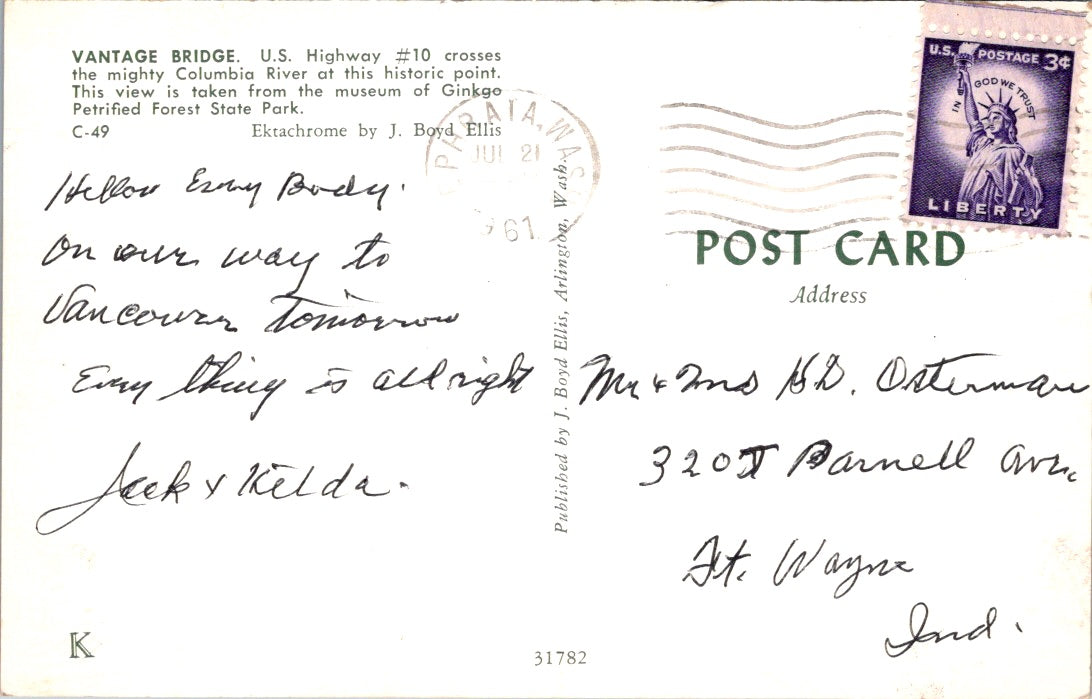 VANTAGE BRIDGE. U.S. Highway #10 crosses
the mighty Columbia River at this historic point.
This view is taken from the museum of Ginkgo
Petrified Forest State Park.
C-49 Ektachrome by J. Boyd Ellis
Hellow Every Body.
On our way to
Vancouver tomorrow
Every thing is all right
Jack & Kelda.
EPHRATA, WASH.
JUL 21
1961
U.S. POSTAGE 3¢
IN GOD WE TRUST
LIBERTY
POST CARD
Address
Mr & Mrs H.D. Osterman
Parnell Ave.
Ft. Wayne
Ind.
Published by J. Boyd Ellis, Arlington, Wash.
K
31782